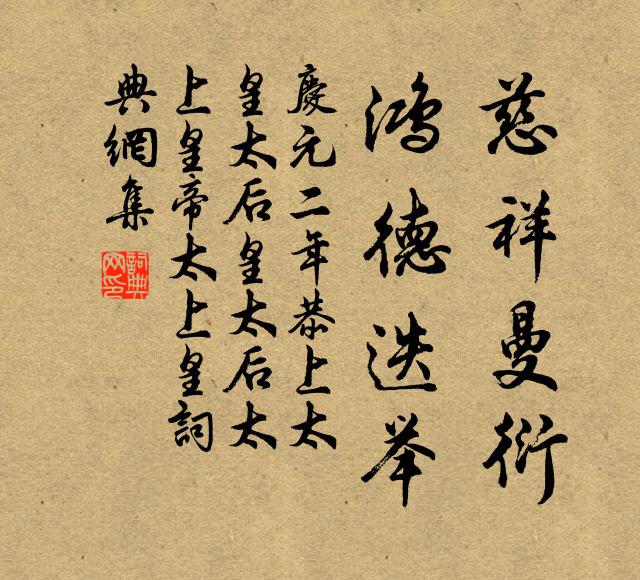 慈祥曼衍
鸿德迭举
慶元二年恭上太
皇太后皇太后太
上皇帝太上皇詞
典網集
詞典
网印